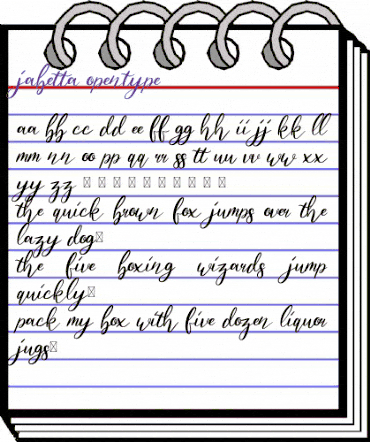 jahetta opentype
aa bb cc dd ee ff gg hh ii jj kk ll
mm nn oo pp qq rr ss tt uu vv ww xx
yy zz
the quick brown fox jumps over the
lazy dog
the five boxing wizards jump
quickly
pack my box with five dozen liquor
jugs